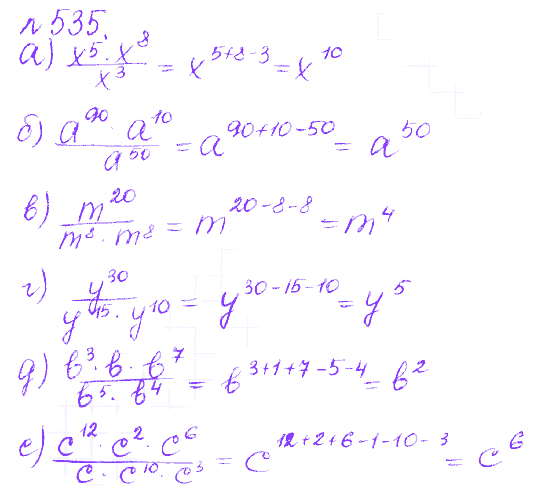 № 535.
а) x⁵ · x⁸ / x³ = x⁵⁺⁸⁻³ = x¹⁰
б) a⁹⁰ · a¹⁰ / a⁵⁰ = a⁹⁰⁺¹⁰⁻⁵⁰ = a⁵⁰
в) m²⁰ / m⁸ · m⁸ = m²⁰⁻⁸⁻⁸ = m⁴
г) y³⁰ / y¹⁵ · y¹⁰ = y³⁰⁻¹⁵⁻¹⁰ = y⁵
д) b³ · b · b⁷ / b⁵ · b⁴ = b³⁺¹⁺⁷⁻⁵⁻⁴ = b²
е) c¹² · c² · c⁶ / c · c¹⁰ · c³ = c¹²⁺²⁺⁶⁻¹⁻¹⁰⁻³ = c⁶